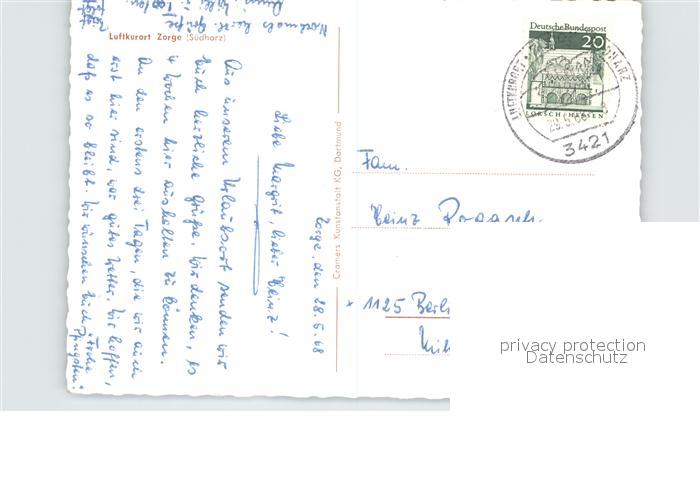 Luftkurort Zorge (Südharz)
Nochmals herzl. Grüße
Zorge, den 28.5.68
Liebe Margrit, lieber Heinz!
Aus unserem Urlaubsort senden wir
Euch herzliche Grüße. Wir denken, es
4 Wochen hier aushalten zu können.
In den ersten drei Tagen, die wir nun
erst hier sind, war gutes Wetter. Wir hoffen,
daß es so bleibt. Wir wünschen Euch Frohe
Pfingsten.
Cramers Kunstanstalt KG, Dortmund
Deutsche Bundespost
20
LORSCH/HESSEN
LUFTKURORT
HARZ
3421
Fam.
Heinz
1125 Berli
privacy protection
Datenschutz